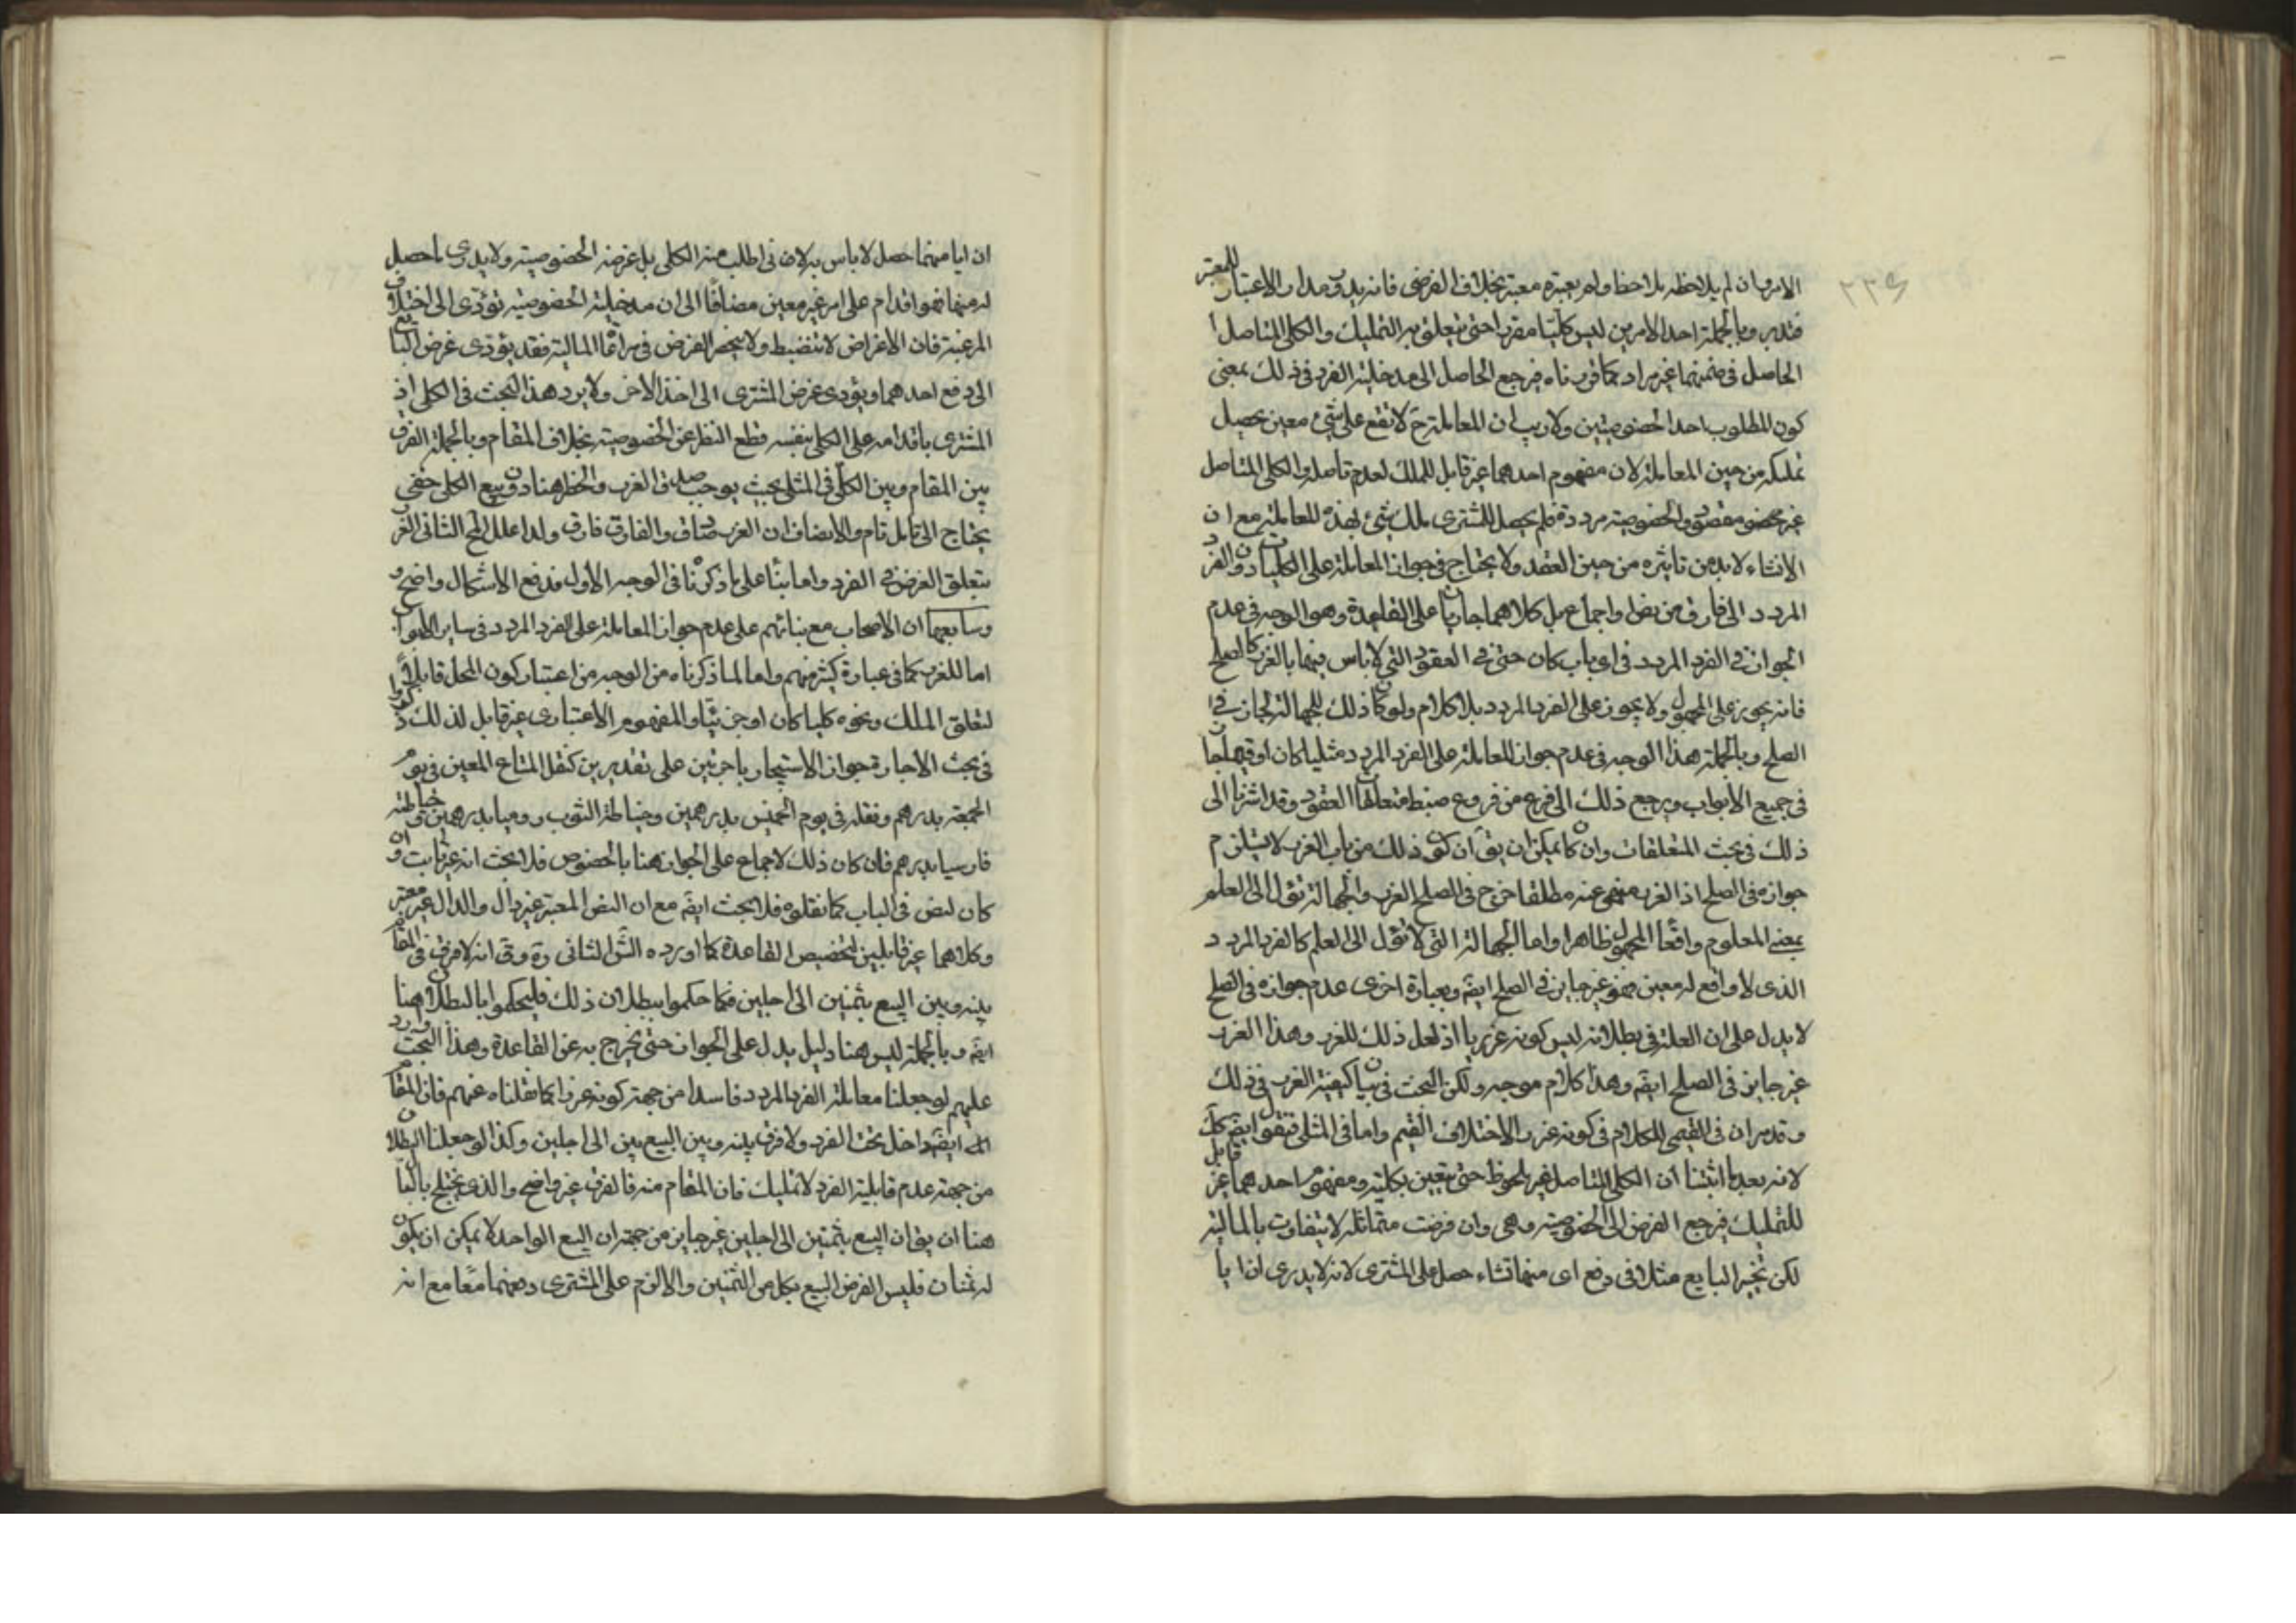 ٢٣٩
الامر وان لم يلاحظه بلاحظ ولم يعتبره معتبر بخلاف الفرضى فانه يدور مدار الاعتبار للمعتبر
فتدبر وبالجملة احد الامرين ليس كليا مقررا حتى يتعلق به التمليك والكلى المتاصل
الحاصل فى ضمنهما غير مراد كما قررناه فرجع الحاصل الى مدخلية الفرد فى ذلك بمعنى
كون المطلوب احد الخصوصيتين ولا ريب ان المعاملة ح لا تقع على شئ معين يحصل
تملكه من حين المعاملة لان مفهوم احدهما غير قابل للملك لعدم تاصله والكلى المتاصل
غير مقصود والخصوصية مرددة فلم يحصل للمشترى ملك شئ بهذه المعاملة مع ان
الانشاء لا بد من تاثيره من حين العقد ولا يحتاج فى جواز المعاملة على الكليات دون الفرد
المردد الى فارق من نص واجماع بل كلاهما جاريان على القاعدة وهو الوجه فى عدم
الجواز فى الفرد المردد فى اى باب كان حتى فى العقود التى لا باس فيها بالغرر كالصلح
فانه يجوز على المجهول ولا يجوز على الفرد المردد بلا كلام ولو كان ذلك للجهالة لجاز فى
الصلح وبالجملة هذا الوجه فى عدم جواز المعاملة على الفرد المردد مثليا كان او قيميا جار
فى جميع الابواب ويرجع ذلك الى فرع من فروع ضبط متعلقات العقود وقد اشرنا الى
ذلك فى بحث المتعلقات وان كان يمكن ان يق ان كون ذلك من باب الغرر لا يستلزم
جوازه فى الصلح اذ الغرر منهى عنه مطلقا خرج فى الصلح الغرر والجهالة تؤل الى العلم
بمعنى المعلوم واقعا المجهول ظاهرا واما الجهالة التى لا تؤل الى العلم كالفرد المردد
الذى لا واقع له معين فهو غير جايز فى الصلح ايضا وبعبارة اخرى عدم جوازه فى الصلح
لا يدل على ان العلة فى بطلانه ليس كونه غرريا اذ لعل ذلك للغرر وهذا الغرر
غير جايز فى الصلح ايضا وهذا كلام موجه ولكن البحث فى بيان كيفية الغرر فى ذلك
وقد مر ان فى القيمى للكلام فى كونه غررا لاختلاف القيم واما فى المثلى فنقول ايضا كك
لانه بعد ما اثبتنا ان الكلى المتاصل غير ملحوظ حتى يتعين بكليته ومفهوم احدهما غير قابل
للتمليك فرجع الغرض الى الخصوصية وهى وان فرضت متماثلة لا يتفاوت بالمالية
لكن تخير البايع مثلا فى دفع اى منهما شاء حصل على المشترى لانه لا يدرى ان ايا
ان ايا منهما حصل لا باس به لانه ما طلب منه الكلى بل غرضه الخصوصية ولا يدرى ما حصل
له منهما فهو اقدام على امر غير معين مضافا الى ان مدخلية الخصوصية تؤدى الى اختلاف
الرغبة فان الاغراض لا تنضبط ولا ينحصر الغرض فى مراتب المالية فقد يؤدى غرض البايع
الى دفع احدهما ويؤدى غرض المشترى الى اخذ الاخر ولا يرد هذا البحث فى الكلى اذ
المشترى باقدامه على الكلى بنفسه قطع النظر عن الخصوصية بخلاف المقام وبالجملة الفرق
بين المقام وبين الكلى فى المثلى بحيث يوجب صدق الغرر والخطر هنا دون بيع الكلى خفى
يحتاج الى تامل تام والانصاف ان الغرر صادق والفارق فارق ولذا علل المح الثانى الغرر
بتعلق الغرض فى الفرد واما بنا على ما ذكرنا فى الوجه الاول فدفع الاشكال واضح
وسابعها ان الاصحاب مع بنائهم على عدم جواز المعاملة على الفرد المردد فى ساير الابواب
اما للغرر كما فى عبارة كثير منهم واما لما ذكرناه من الوجه من اعتبار كون المحل قابلا
لتعلق الملك ونحوه كليا كان او جزئيا والمفهوم الاعتبارى غير قابل لذلك ذكروا
فى بحث الاجارة جواز الاستيجار باجرتين على تقديرين كنقل المتاع المعين فى يوم
الجمعة بدرهم ونقله فى يوم الخميس بدرهمين وخياطة الثوب روميا بدرهمين وخياطته
فارسيا بدرهم فان كان ذلك لاجماع على الجواز هنا بالخصوص فلا بحث انه غير ثابت وان
كان لنص فى الباب كما نقلوه فلا بحث ايضا مع ان النص المعتبر غير دال والدال غير معتبر
وكلاهما غير قابلين لتخصيص القاعدة كما اورده الش الثانى ره وق انه لا فرق فى المقام
بينه وبين البيع بثمنين الى اجلين فكما حكموا ببطلان ذلك فليحكموا بالبطلان هنا
ايضا وبالجملة ليس هنا دليل يدل على الجواز حتى يخرج به عن القاعدة وهذا البحث وارد
عليهم لو جعلنا معاملة الفرد المردد فاسدا من جهة كونه غررا كما نقلناه عنهم فان المقام
ايضا داخل تحت الفرد ولا فرق بينه وبين البيع بين الى اجلين وكذا لو جعلنا البطلان
من جهة عدم قابلية الفرد لا تمليك فان المقام منه فالفرق غير واضح والذى يختلج بالبال
هنا ان يق ان البيع بثمنين الى اجلين غير جايز من جهة ان البيع الواحد لا يمكن ان يكون
له ثمنان فليس الغرض البيع بكل من الثمنين والا لزم على المشترى دفعهما معا مع انه